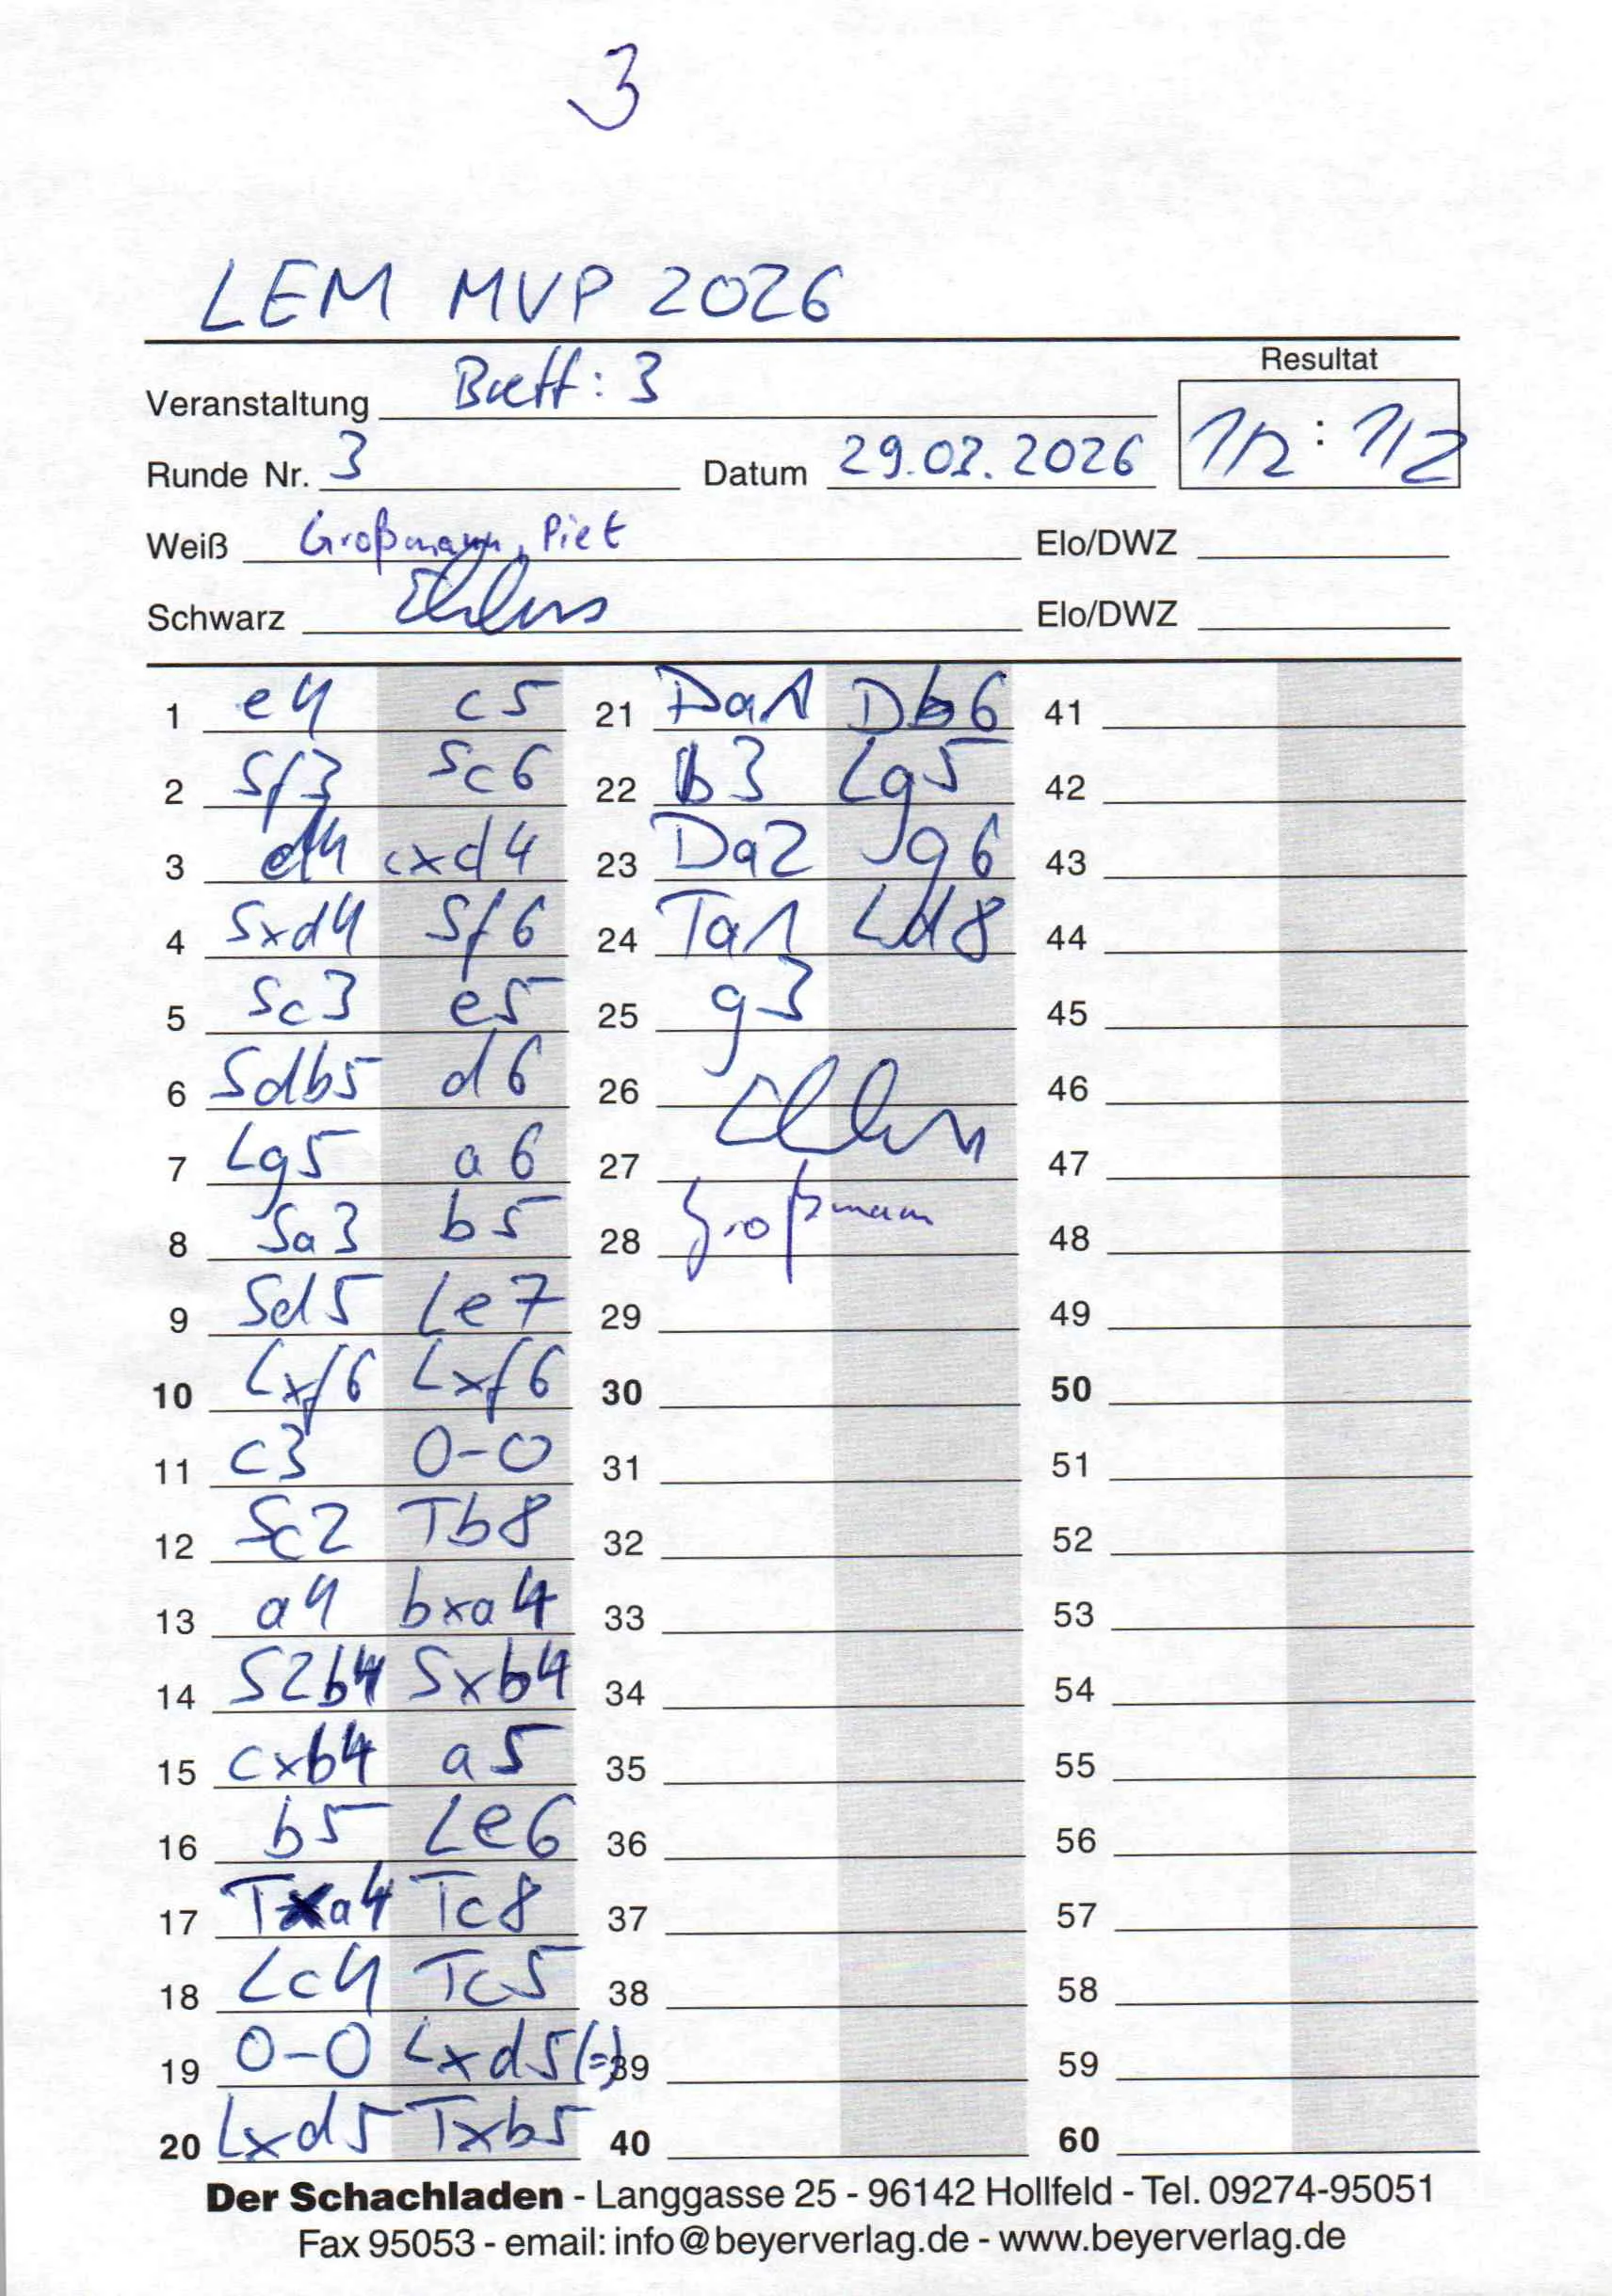 3
LEM MVP 2026
Resultat
Veranstaltung Brett: 3
1/2 : 1/2
Runde Nr. 3 Datum 29.03.2026
Weiß Großmann, Piet Elo/DWZ
Schwarz Ehlers Elo/DWZ
1 e4 c5 21 Da1 Db6 41
2 Sf3 Sc6 22 b3 Lg5 42
3 d4 cxd4 23 Da2 g6 43
4 Sxd4 Sf6 24 Ta1 Ld8 44
5 Sc3 e5 25 g3 45
6 Sdb5 d6 26 46
7 Lg5 a6 27 Ehlers 47
8 Sa3 b5 28 Großmann 48
9 Sd5 Le7 29 49
10 Lxf6 Lxf6 30 50
11 c3 0-0 31 51
12 Sc2 Tb8 32 52
13 a4 bxa4 33 53
14 S2b4 Sxb4 34 54
15 cxb4 a5 35 55
16 b5 Le6 36 56
17 Txa4 Tc8 37 57
18 Lc4 Tc5 38 58
19 0-0 Lxd5(=) 39 59
20 Lxd5 Txb5 40 60
Der Schachladen - Langgasse 25 - 96142 Hollfeld - Tel. 09274-95051
Fax 95053 - email: info@beyerverlag.de - www.beyerverlag.de